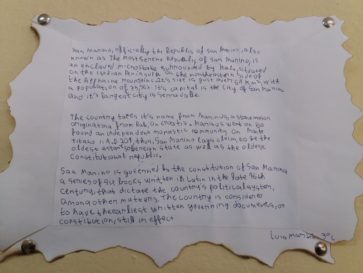 San Marino, officially the Republic of San Marino, also
known as The Most Serene Republy of San Marino, is
an enclaved microstate surrounded by Italy, situated
on the Italian Peninsula on the northeastern side of
the Appennine Mountains. It's size is just over 61 km², with
a population of It's capital is the City of San Marino
and it's largest city is Serravalle.
The country takes it's name from Marinus, a stonemason
originating from Rab, in Croatia. Marinus went on to
found an independent monastic community on Monte
Titano in A.D. 301, thus, San Marino lays claim to be the
oldest sovereign state as well as the oldest
constitutional republic.
San Marino is governed by the constitution of San Marino,
a series of six books written in Latin in the late 16th
century, that dictate the country's political system,
among other matters. The country is considered
to have the earliest written governing documents, or
constitution, still in effect